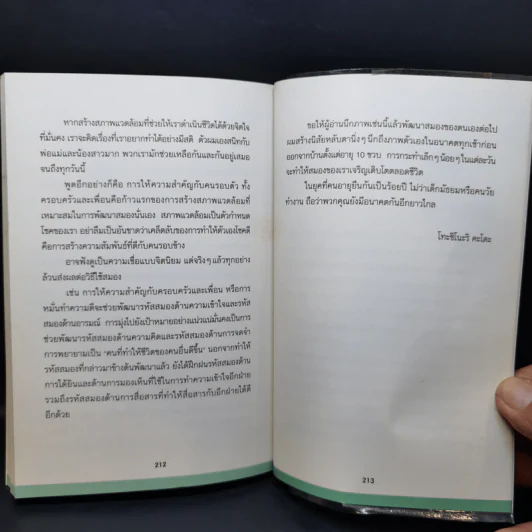 หากสร้างสภาพแวดล้อมที่ช่วยให้เราดำเนินชีวิตได้ด้วยจิตใจ
ที่มั่นคง เราจะคิดเรื่องที่เราอยากทำได้อย่างมีสติ ตัวผมเองสนิทกับ
พ่อแม่และน้องสาวมาก พวกเรามักช่วยเหลือกันและกันอยู่เสมอ
จนถึงทุกวันนี้
พูดอีกอย่างก็คือ การให้ความสำคัญกับคนรอบตัว ทั้ง
ครอบครัวและเพื่อนคือก้าวแรกของการสร้างสภาพแวดล้อมที่
เหมาะสมในการพัฒนาสมองนั่นเอง สภาพแวดล้อมเป็นตัวกำหนด
โชคของเรา อย่าลืมเป็นอันขาดว่าเคล็ดลับของการทำให้ตัวเองโชคดี
คือการสร้างความสัมพันธ์ที่ดีกับคนรอบข้าง
อาจฟังดูเป็นความเชื่อแบบจิตนิยม แต่จริงๆ แล้วทุกอย่าง
ล้วนส่งผลต่อวิธีใช้สมอง
เช่น การให้ความสำคัญกับครอบครัวและเพื่อน หรือการ
หมั่นทำความดีจะช่วยพัฒนารหัสสมองด้านความเข้าใจและรหัส
สมองด้านอารมณ์ การมุ่งไปยังเป้าหมายอย่างแน่วแน่มั่นคงเป็นการ
ช่วยพัฒนารหัสสมองด้านความคิดและรหัสสมองด้านการจดจำ
การพยายามเป็น "คนที่ทำให้ชีวิตของคนอื่นดีขึ้น" นอกจากทำให้
รหัสสมองที่กล่าวมาข้างต้นพัฒนาแล้ว ยังได้ฝึกฝนรหัสสมองด้าน
การได้ยินและด้านการมองเห็นที่ใช้ในการทำความเข้าใจอีกฝ่าย
รวมถึงรหัสสมองด้านการสื่อสารที่ทำให้สื่อสารกับอีกฝ่ายได้ดี
อีกด้วย
212
ขอให้ผู้อ่านนึกภาพเช่นนี้แล้วพัฒนาสมองของตนเองต่อไป
ผมสร้างนิสัยหลับตานิ่งๆ นึกถึงภาพตัวเองในอนาคตทุกเช้าก่อน
ออกจากบ้านตั้งแต่อายุ 10 ขวบ การกระทำเล็กๆ น้อยๆ ในแต่ละวัน
จะทำให้สมองของเราเจริญเติบโตตลอดชีวิต
ในยุคที่คนอายุยืนกันเป็นร้อยปี ไม่ว่าเด็กมัธยมหรือคนวัย
ทำงาน ถือว่าพวกคุณยังมีอนาคตกันอีกยาวไกล
โทะชิโนะริ คะโตะ
213